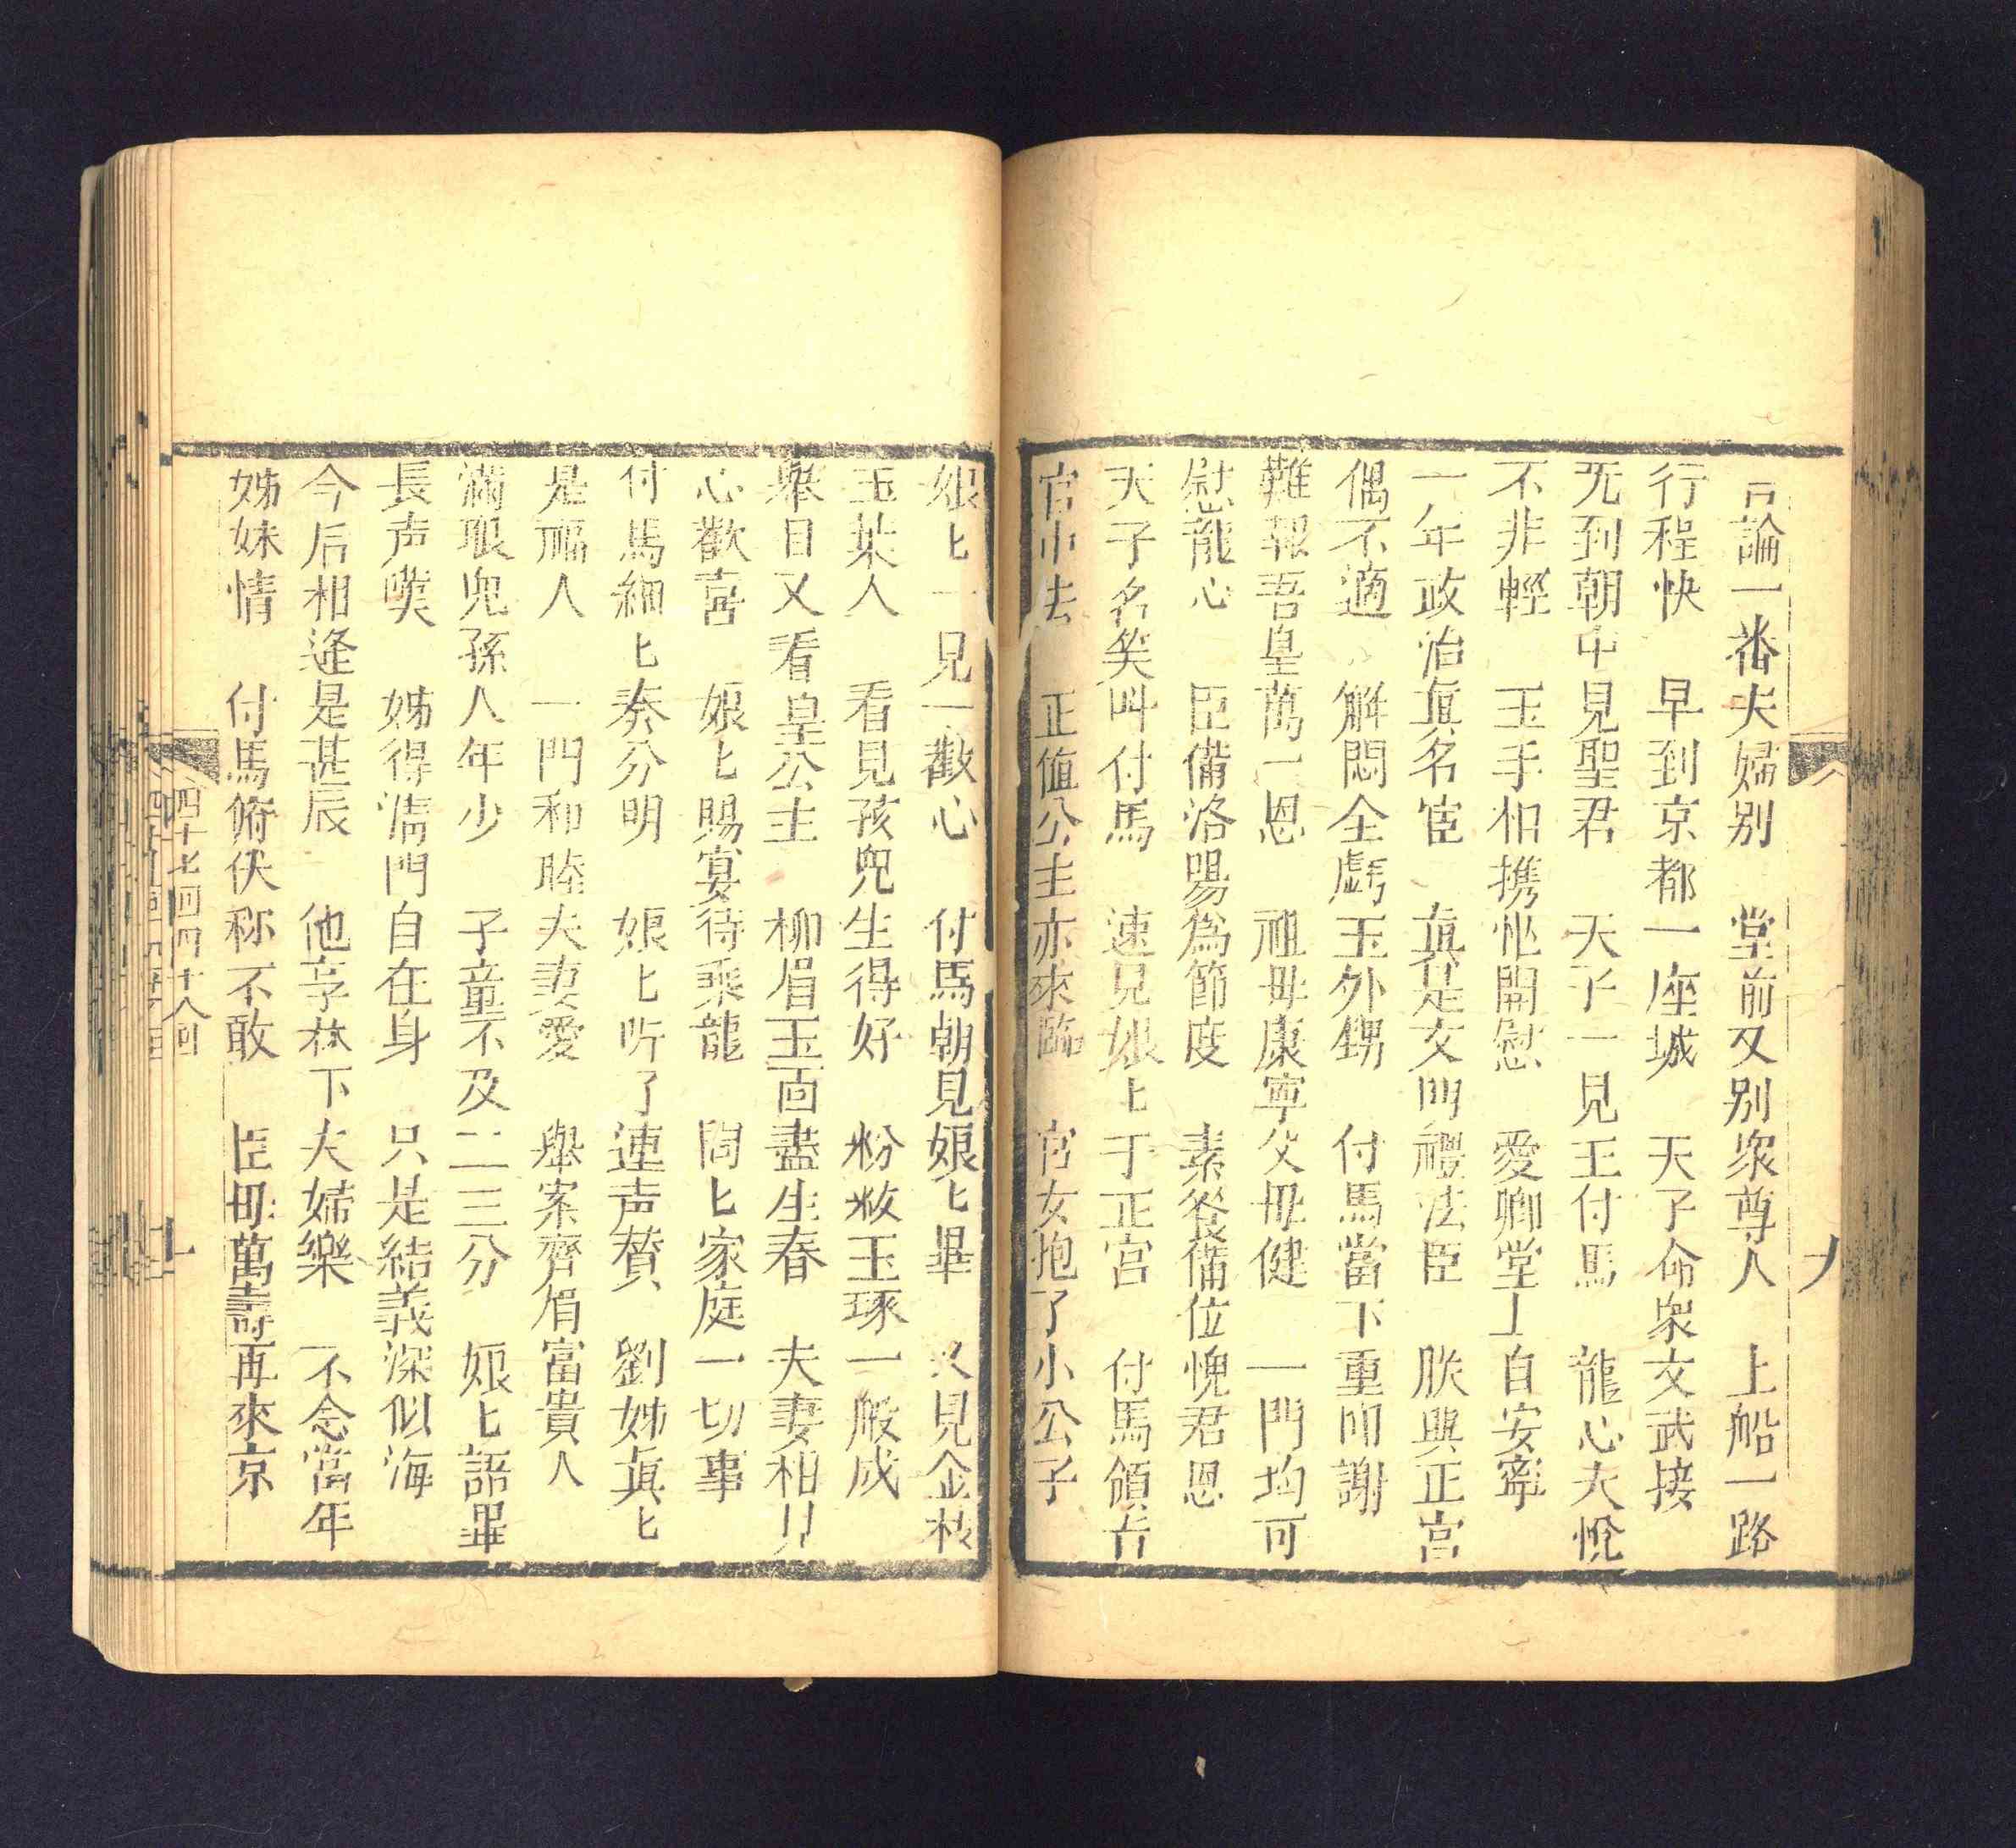 言論一番夫婦别　堂前又别衆尊人　上船一路
行程快　早到京都一座城　天子命衆文武接
旡到朝中見聖君　天子一見王付馬　龍心大悅
不非輕　玉手相携忙開慰　愛卿堂上自安寧
一年政治眞名宦　眞是文門禮法臣　朕與正宫
偶不適　解悶全虧玉外甥　付馬當下重叩謝
難報吾皇萬一恩　祖母康寧父母健　一門均可
慰龍心　臣備洛陽為節度　素餐備位愧君恩
天子名笑叫付馬　速見娘匕于正宫　付馬領旨
官中去　正值公主亦來臨　宫女抱了小公子
娘匕一見一歡心　付馬朝見娘匕畢　又見金枝
玉葉人　看見孩兒生得好　粉粧玉琢一般成
舉目又看皇公主　柳眉玉面盡生春　夫妻相見
心歡喜　娘匕賜宴待乘龍　問匕家庭一切事
付馬細匕奏分明　娘匕听了連声賛　劉姊眞匕
是福人　一門和睦夫妻愛　舉案齊眉富貴人
滿眼兒孫人年少　子童不及二三分　娘匕語畢
長声嘆　姊得清門自在身　只是結義深似海
今后相逢是甚辰　他享林下夫婦樂　不念當年
姊妹情　付馬俯伏称不敢　臣母萬壽再來京
四十七回四十八回